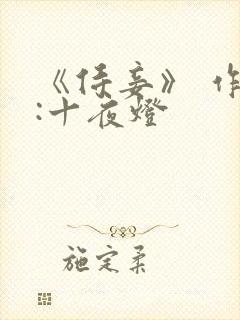 《侯妾》 作
:十夜燈
施定柔